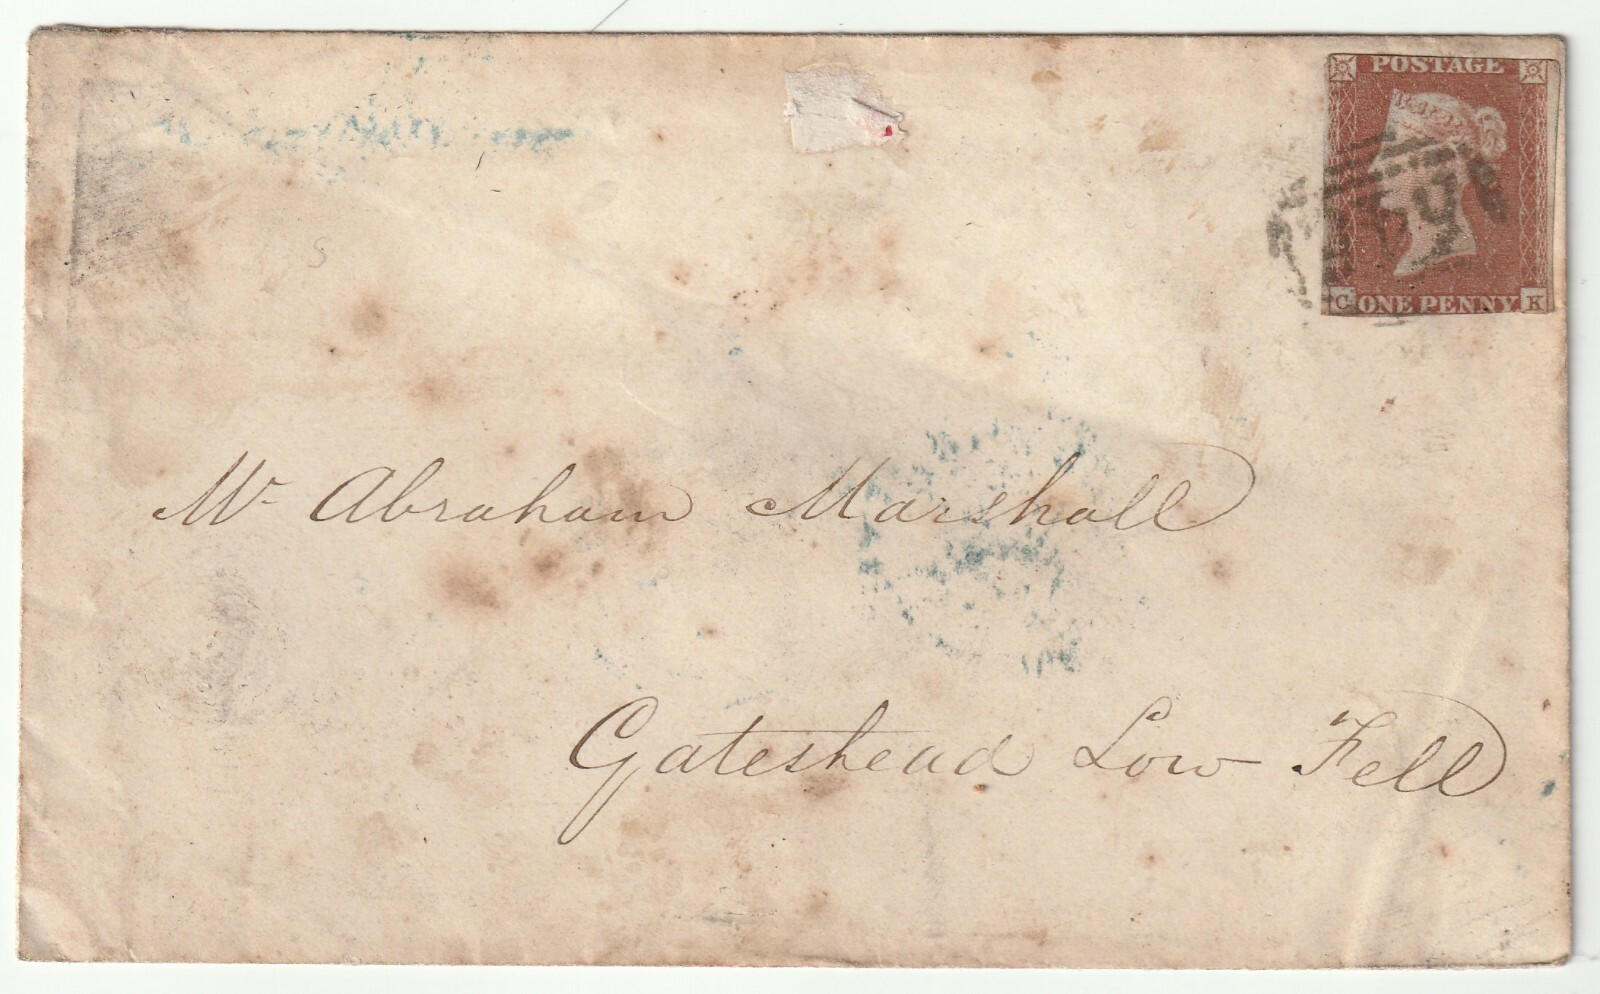 POSTAGE
C ONE PENNY K
S
Mr Abraham Marshall
Gateshead Low Fell